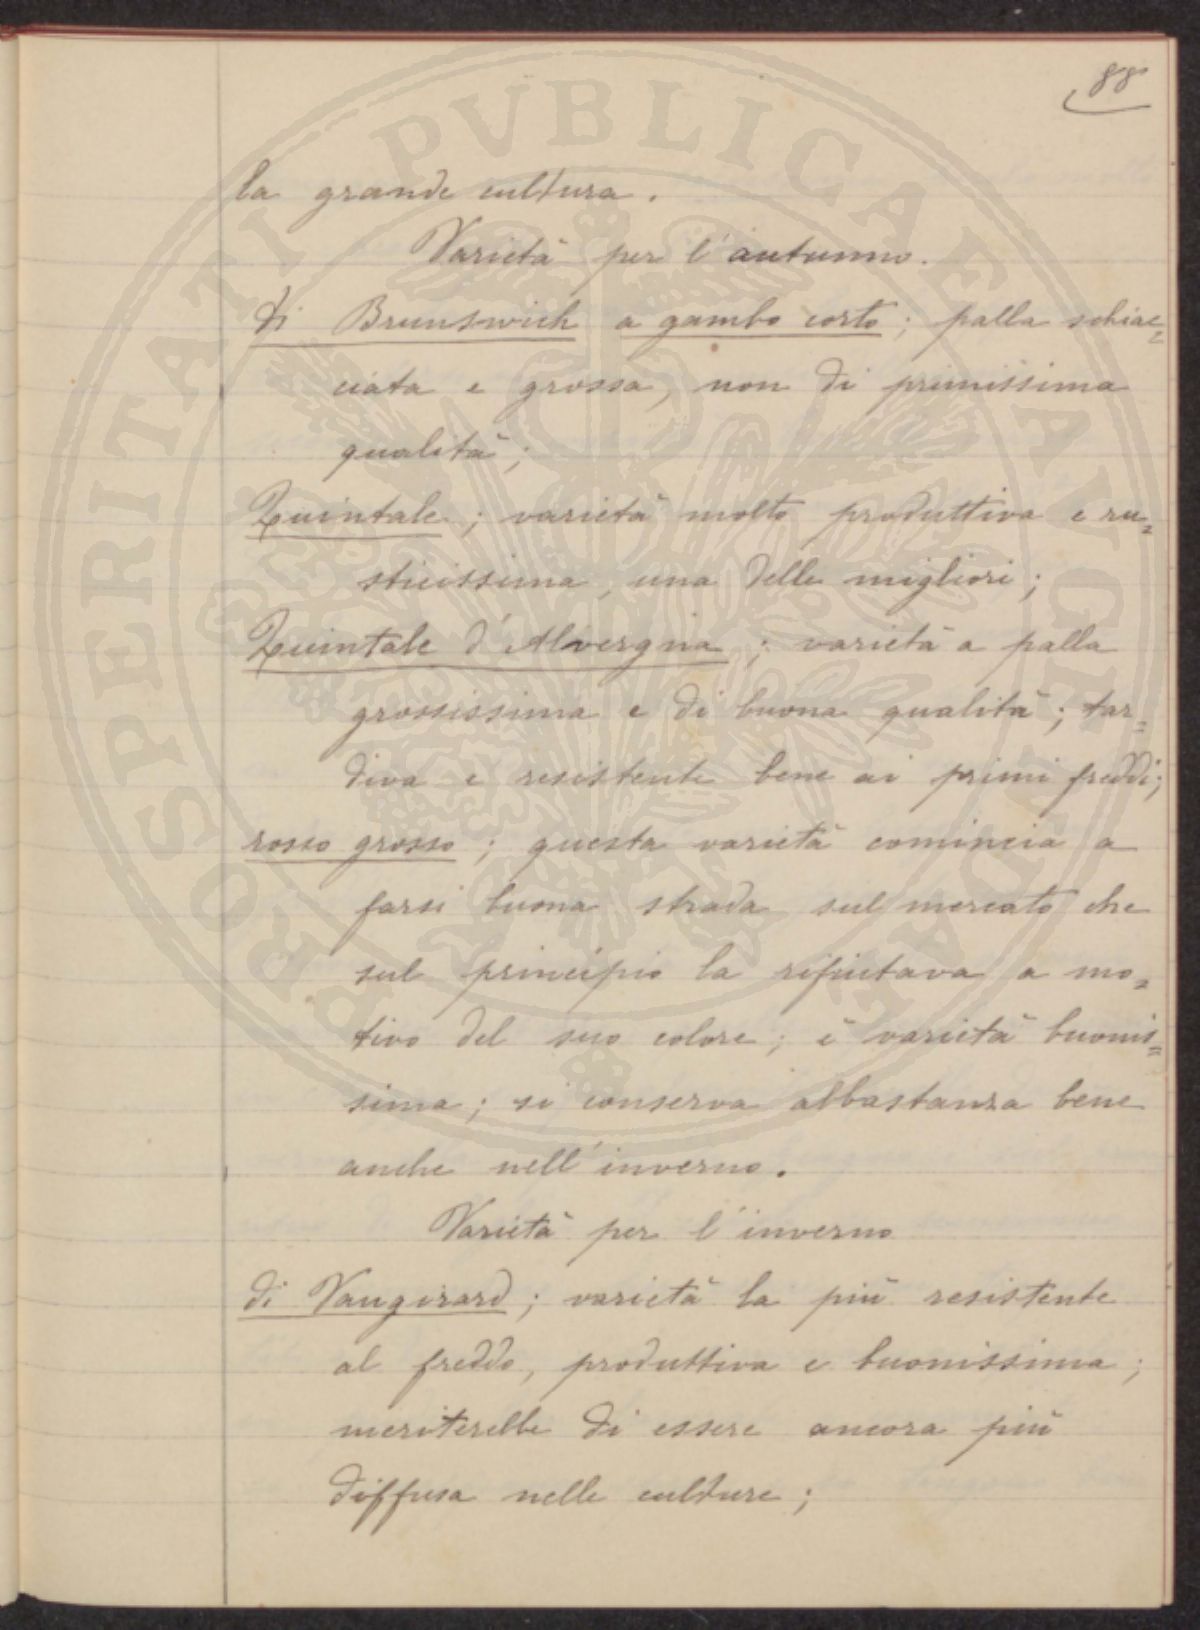 88
la grande cultura.
Varietà per l'autunno.
di Brunswich a gambo corto; palla schiac=
ciata e grossa, non di primissima
qualità;
Quintale; varietà molto produttiva e ru=
sticissima, una delle migliori;
Quintale d'Alvergna; varietà a palla
grossissima e di buona qualità; tar=
diva e resistente bene ai primi freddi;
rosso grosso; questa varietà comincia a
farsi buona strada sul mercato che
sul principio la rifiutava a mo=
tivo del suo colore; è varietà buonis=
sima; si conserva abbastanza bene
anche nell'inverno.
Varietà per l'inverno
di Vaugirard; varietà la più resistente
al freddo, produttiva e buonissima;
meriterebbe di essere ancora più
diffusa nelle culture;
PROSPERITATI PVBLICAE AVGENDAE